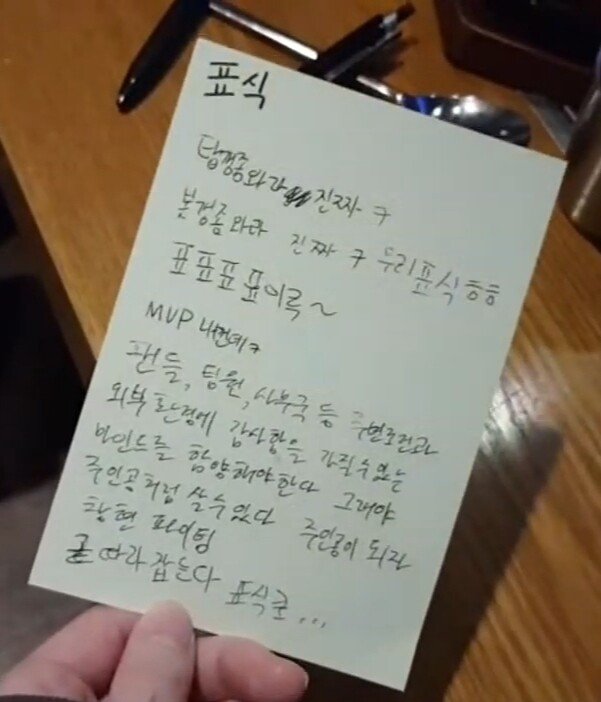 표식
탑갱좀와라 진짜 ㅋ
봇갱좀와라 진짜 ㅋ 우리표식 ㅎㅎ
표표표표이륵~
MVP 내껀데ㅋ
팬들, 팀원, 사무국 등 주변조건과
외부환경에 감사함을 가질수있는
마인드를 함양해야한다 그래야
주인공처럼 살수있다 주인공이 되진
창현 파이팅
곧 따라잡는다 표식쿤...